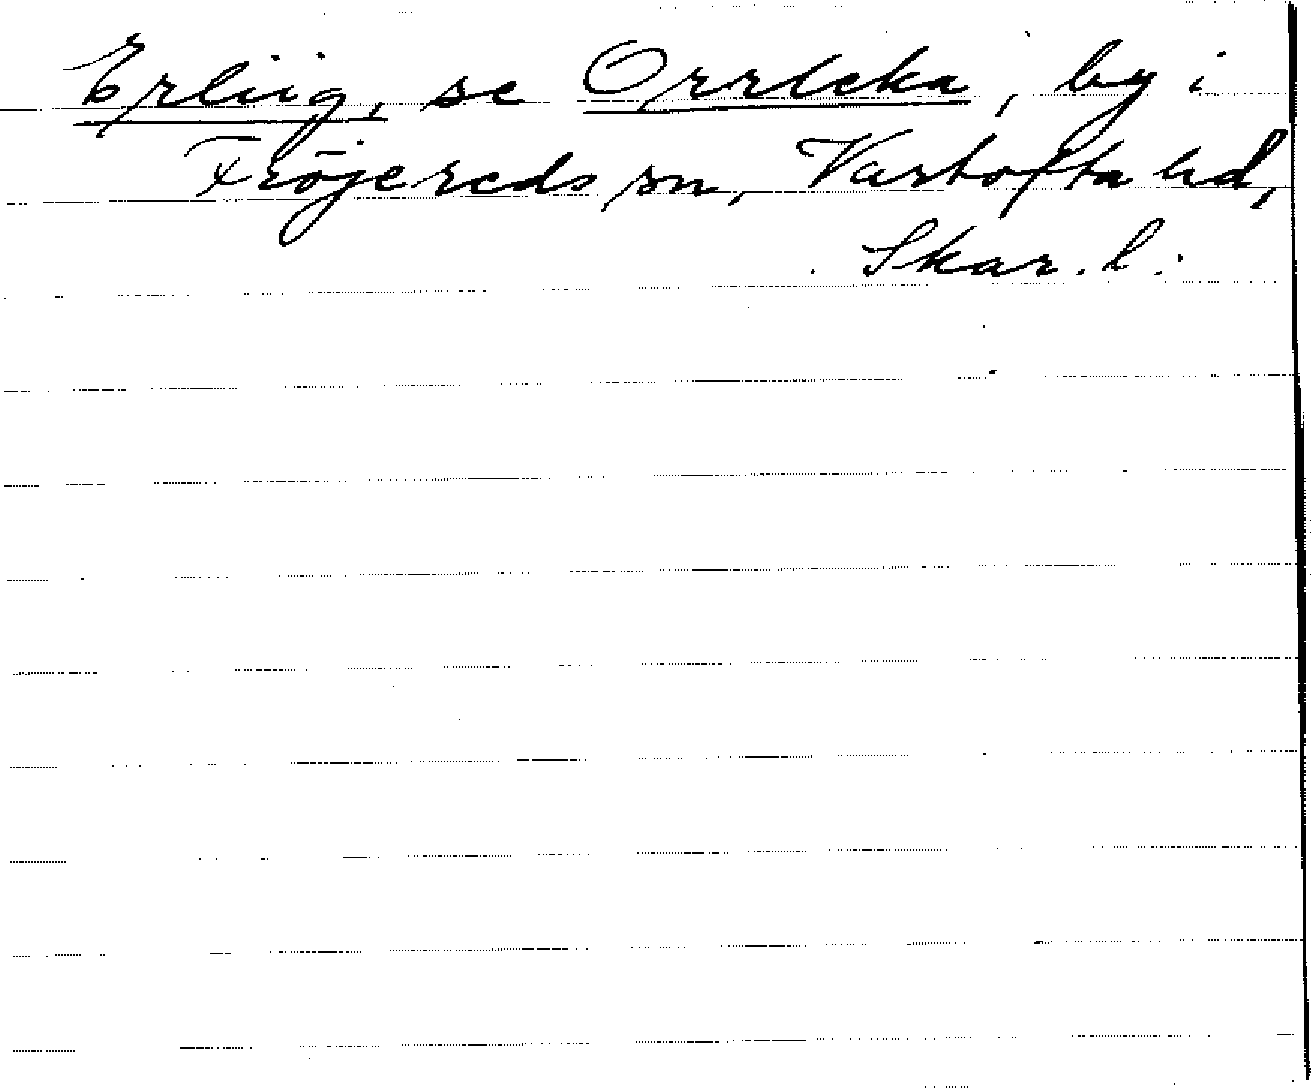 Erliig, se Orrleka, by i
Fröjereds sn, Vartofta hd,
Skar. l.